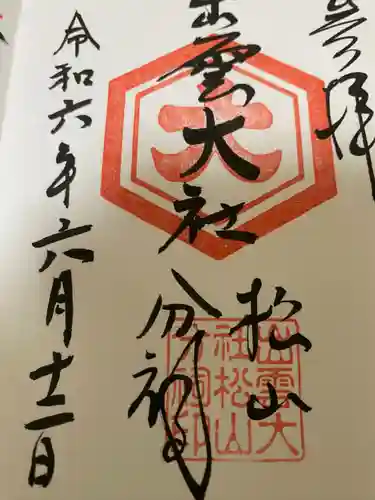 奉拝
出雲大社
松山
分祠
令和六年六月十二日
大
出雲大
社松山
分祠印